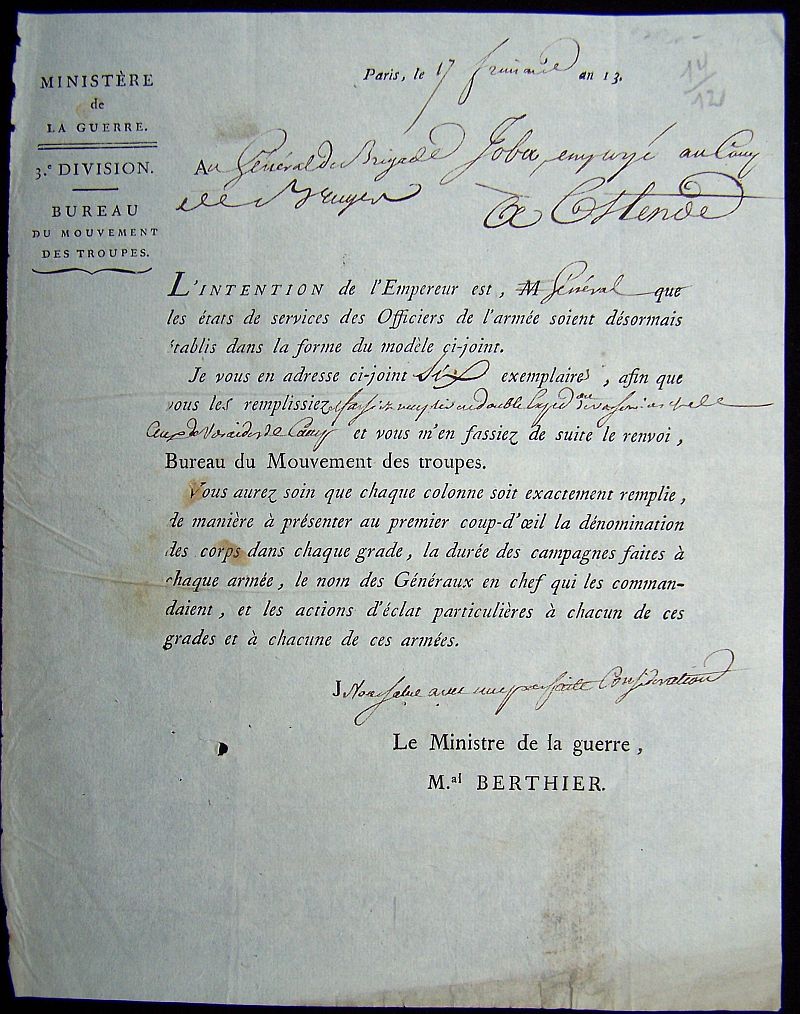 MINISTÈRE
de
LA GUERRE.
3.e DIVISION.
BUREAU
DU MOUVEMENT
DES TROUPES.
Paris, le 17 frimaire an 13.
14/12
Au Général de Brigade Joba, employé au Camp
de Bruges
à Ostende
L'INTENTION de l'Empereur est, M Général que
les états de services des Officiers de l'armée soient désormais
établis dans la forme du modèle ci-joint.
Je vous en adresse ci-joint Six exemplaires, afin que
vous les remplissiez
ceux de vos aides de Camp et vous m'en fassiez de suite le renvoi,
Bureau du Mouvement des troupes.
Vous aurez soin que chaque colonne soit exactement remplie,
de manière à présenter au premier coup-d'œil la dénomination
des corps dans chaque grade, la durée des campagnes faites à
chaque armée, le nom des Généraux en chef qui les comman-
daient, et les actions d'éclat particulières à chacun de ces
grades et à chacune de ces armées.
J Vous salue avec une parfaite Considération
Le Ministre de la guerre,
M.al BERTHIER.